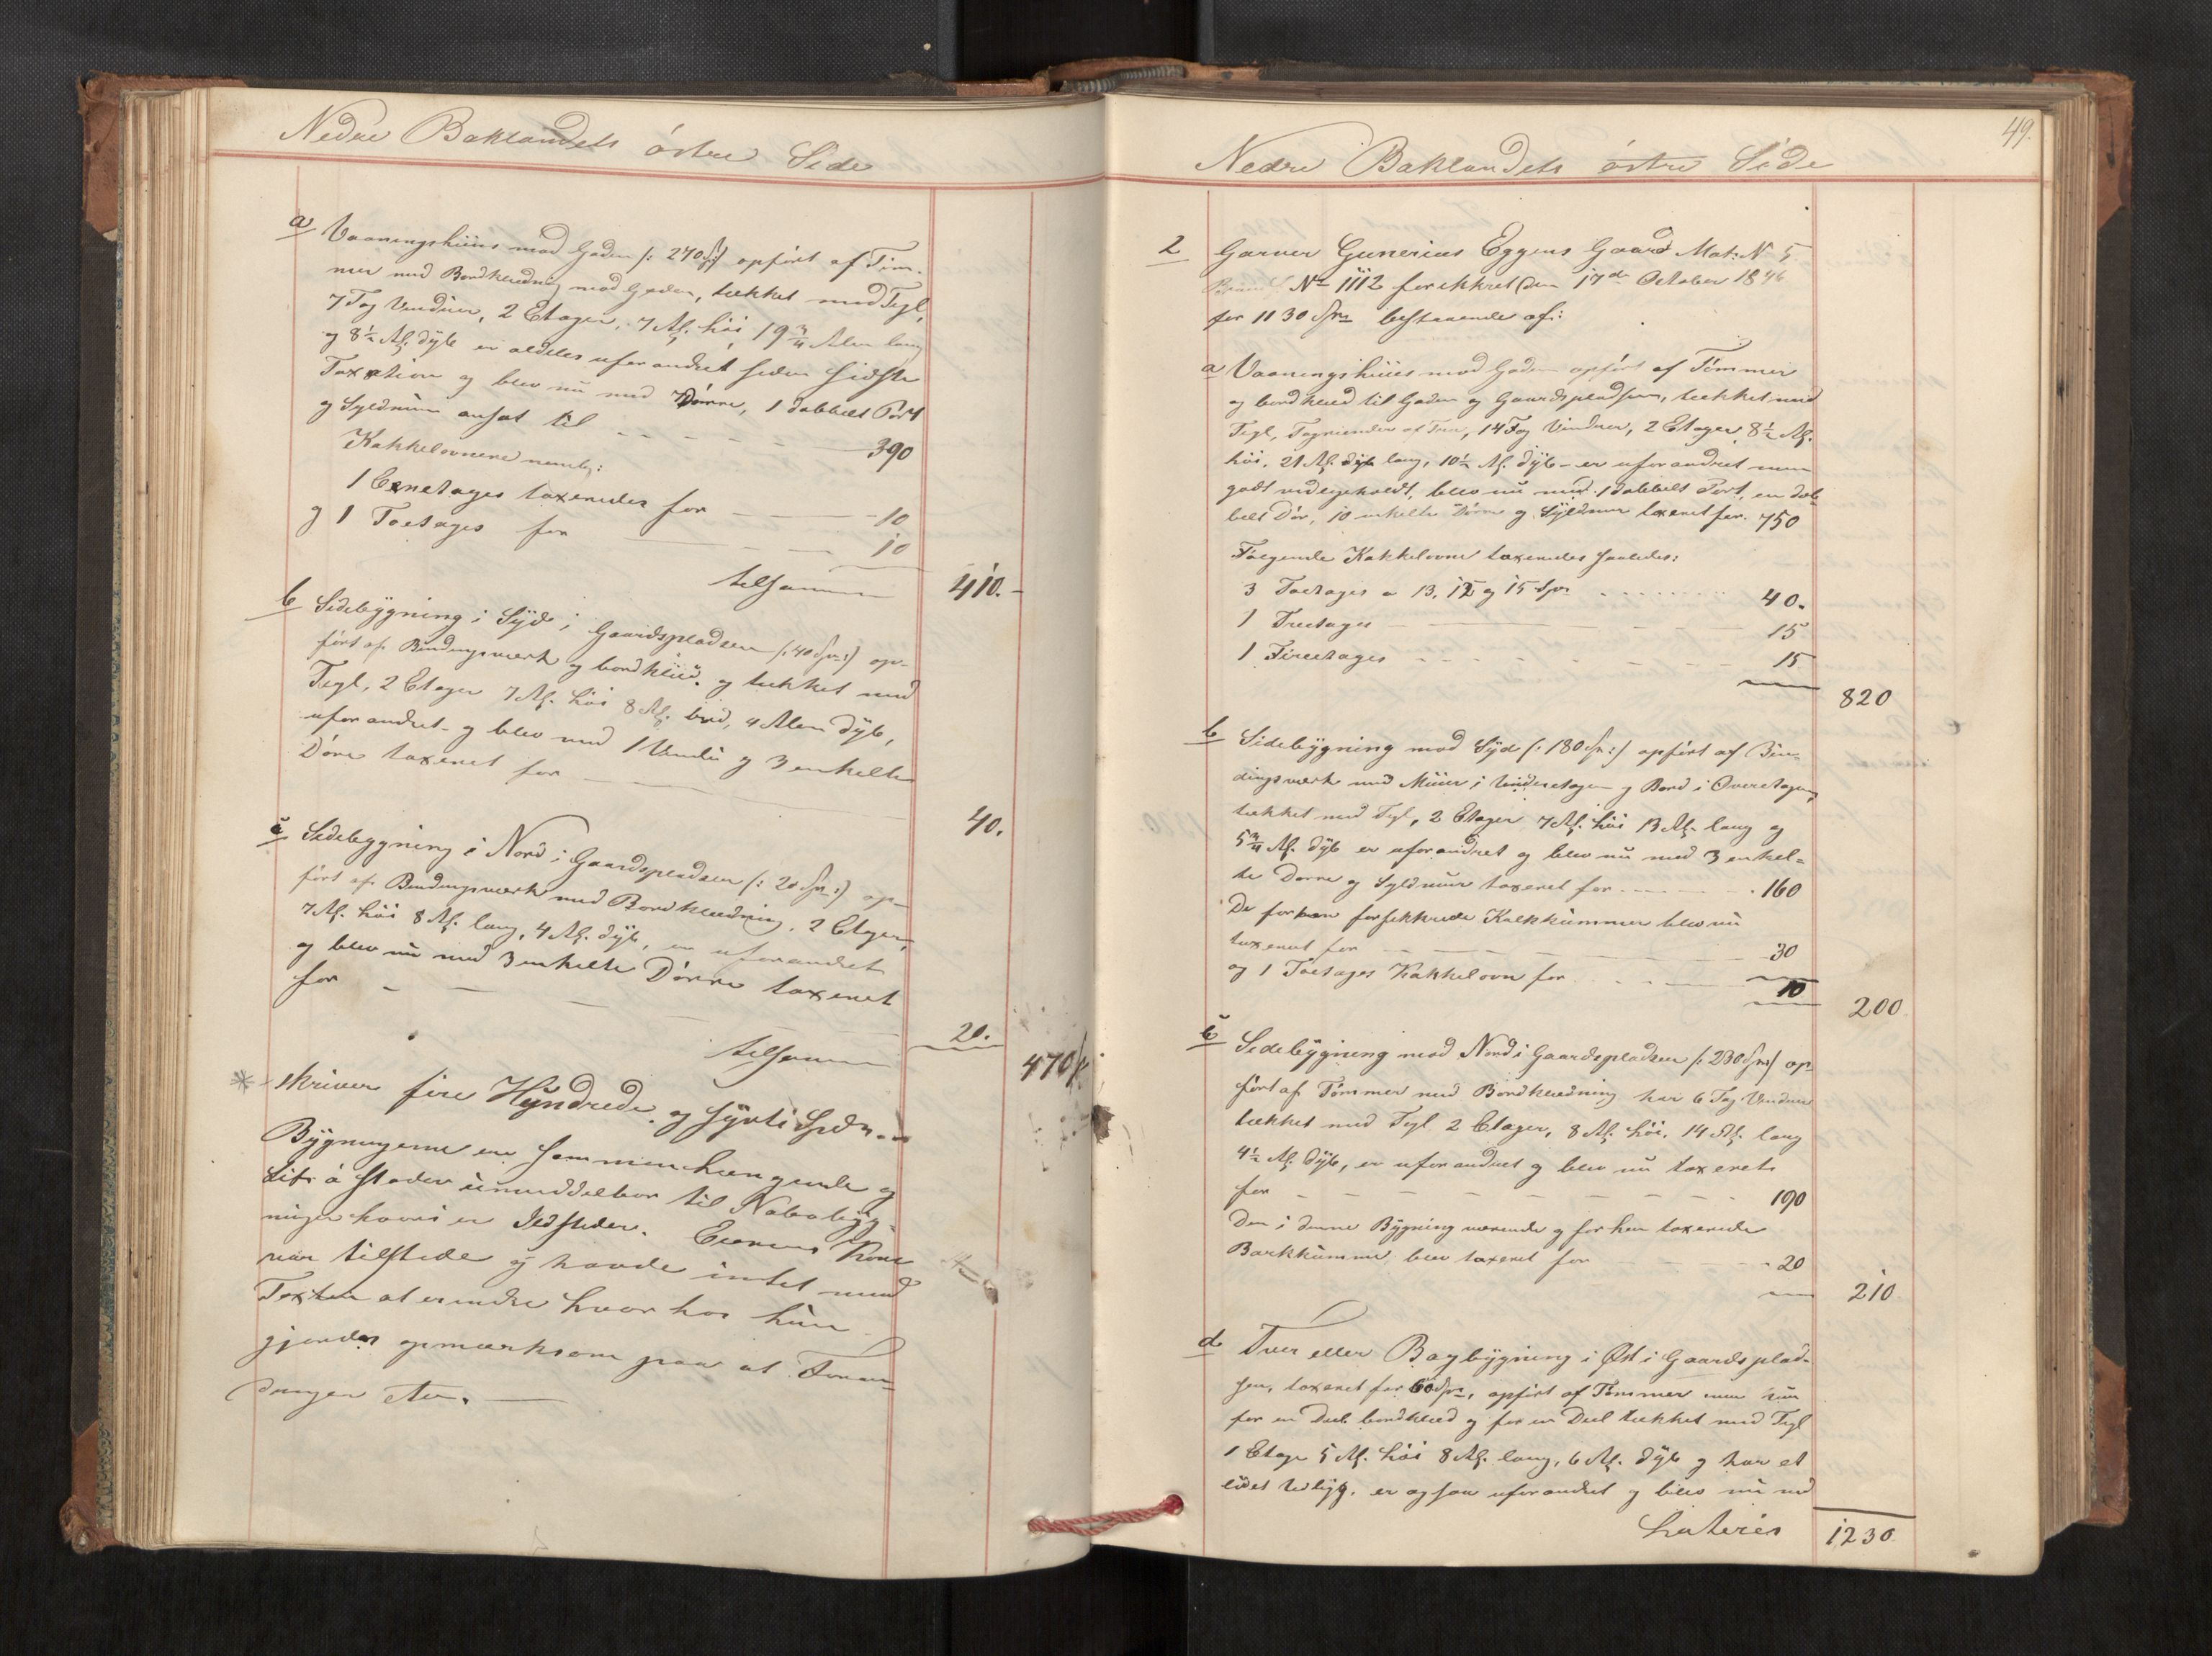 Nedre Baklandets östre Side
a Vaaningshuus mod Gaden /: 270 Spd :/ opført af Töm-
mer med Bordklædning mod Gaden, tækket med Tegl,
7 Fag Vinduer, 2 Etager, 7 Al. höi, 19 3/4 Alen lang
og 8 1/2 Al. dyb er aldeles uforandret siden sidste
Taxation og blev nu med 7 Dörre, 1 dobbelt Port
og Syldmuur ansat til 390
Kakkelovnene nemlig:
1 Eenetages taxeredes for 10
og 1 Toetages for 10
tilsammen 410.
b Sidebygning i Syd i Gaardspladsen /: 40 Spd :/ op-
ført af Bindingsværk og bordklæd. og tækket med
Tegl, 2 Etager 7 Al. höi 8 Al. bred, 4 Alen dyb,
uforandret og blev med 1 Vindu og 3 enkelte
Döre taxeret for 40.
c Sidebygning i Nord i Gaardspladsen /: 20 Spd :/ op-
ført af Bindingsværk med Bordklædning, 2 Etager,
7 Al. höi 8 Al. lang, 4 Al. dyb, er uforandret
og blev nu med 3 enkelte Dörre taxeret
for 20.
tilsammen 470
skriver fire Hundrede og syvti Spd
Bygningerne ere sammenhængende og
umiddelbar til Nabobyg-
ninger hvori er Ildsteder. Eierens Kone
var tilstede og havde intet mod
Taxten at erindre hvorhos hun
gjordes opmærksom paa at Foran-
dringer etc.
49.
Nedre Baklandets östre Side
2 Garver Gunerius Eggens Gaard Mat: No 5
Brand No 1112 forsikkret den 17de October 1846
for 1130 Spd bestaaende af:
a Vaaningshuus mod Gaden opført af Tömmer
og bordklæd til Gaden og Gaardspladsen, tækket med
Tegl, Tagrender af Træ, 14 Fag Vinduer, 2 Etager, 8 1/2 Al.
höi, 21 Al. dyb lang, 10 1/2 Al. dyb - er uforandret men
godt vedligeholdt, blev nu med 1 dobbelt Port, en dob-
belt Dör, 10 enkelte Dörre og Syldmuur taxeret for 750
Fölgende Kakkelovne taxeredes saaledes:
3 Toetages a 13, 12 og 15 Spd 40.
1 Treetages 15
1 Fireetages 15
820
b Sidebygning mod Syd /: 180 Spd :/ opført af Bin-
dingsværk med Muur i Underetagen og Bord i Overetagen,
tækket med Tegl, 2 Etager 7 Al. höi 13 Al. lang og
5 3/4 Al. dyb er uforandret og blev nu med 3 enkel-
te Dörre og Syldmuur taxeret for 160
De forhen forsikkrede Kalkkummer blev nu
taxeret for 30
og 1 Toetages Kakkelovn for 10
200
c Sidebygning mod Nord i Gaardspladsen /: 230 Spd :/ op-
ført af Tömmer med Bordklædning har 6 Fag Vinduer
tækket med Tegl 2 Etager, 8 Al. höi, 14 Al. lang
4 1/2 Al. dyb, er uforandret og blev nu taxeret
for 190
Den i denne Bygning værende og forhen taxerede
Barkkumme blev taxeret for 20
210
d Tver eller Bagbygning i Øst i Gaardsplad-
sen, taxeret for 60 Spd, opført af Tömmer men kun
for en Deel bordklæd og for en Deel tækket med Tegl
1 Etage 5 Al. höi 8 Al. lang, 6 Al. dyb og har et
lidet Udbygg. er ogsaa uforandret og blev nu ved
Lateris 1230